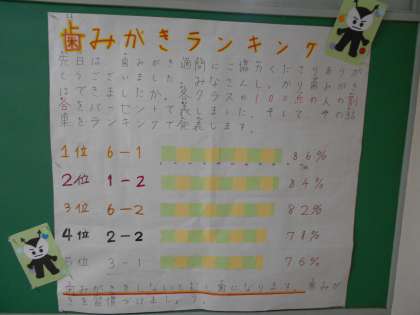 歯みがきランキング
先日は、歯みがき週間にご協力くださりありが
とうございました。みなさんしっかり歯みがき
はできましたか。各クラスの100点の人の割
合をパーセントで表しました。そして、その結
果をランキングで発表します。
1位 6-1 86%
2位 1-2 84%
3位 6-2 82%
4位 2-2 78%
5位 3-1 76%
歯みがきをしないと、むし歯になります。歯みが
きを習慣づけましょう。